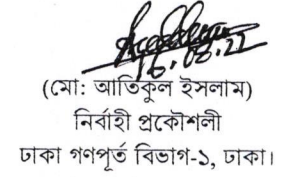 16.08.22
(মো: আতিকুল ইসলাম)
নির্বাহী প্রকৌশলী
ঢাকা গণপূর্ত বিভাগ-১, ঢাকা।